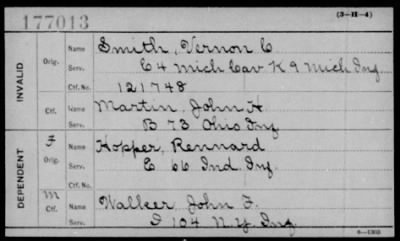 177013
(3-H-4)
INVALID
Orig.
Name Smith, Vernon C
Serv. C 4 Mich Cav K 9 Mich Inf
Ctf. No. 121748
Ctf.
Name Martin, John H
Serv. B 73 Ohio Inf
DEPENDENT
F
Orig.
Name Hopper, Rennard
Serv. E 66 Ind. Inf.
Ctf. No.
M
Ctf.
Name Walker, John F.
Serv. I 104 N.Y. Inf